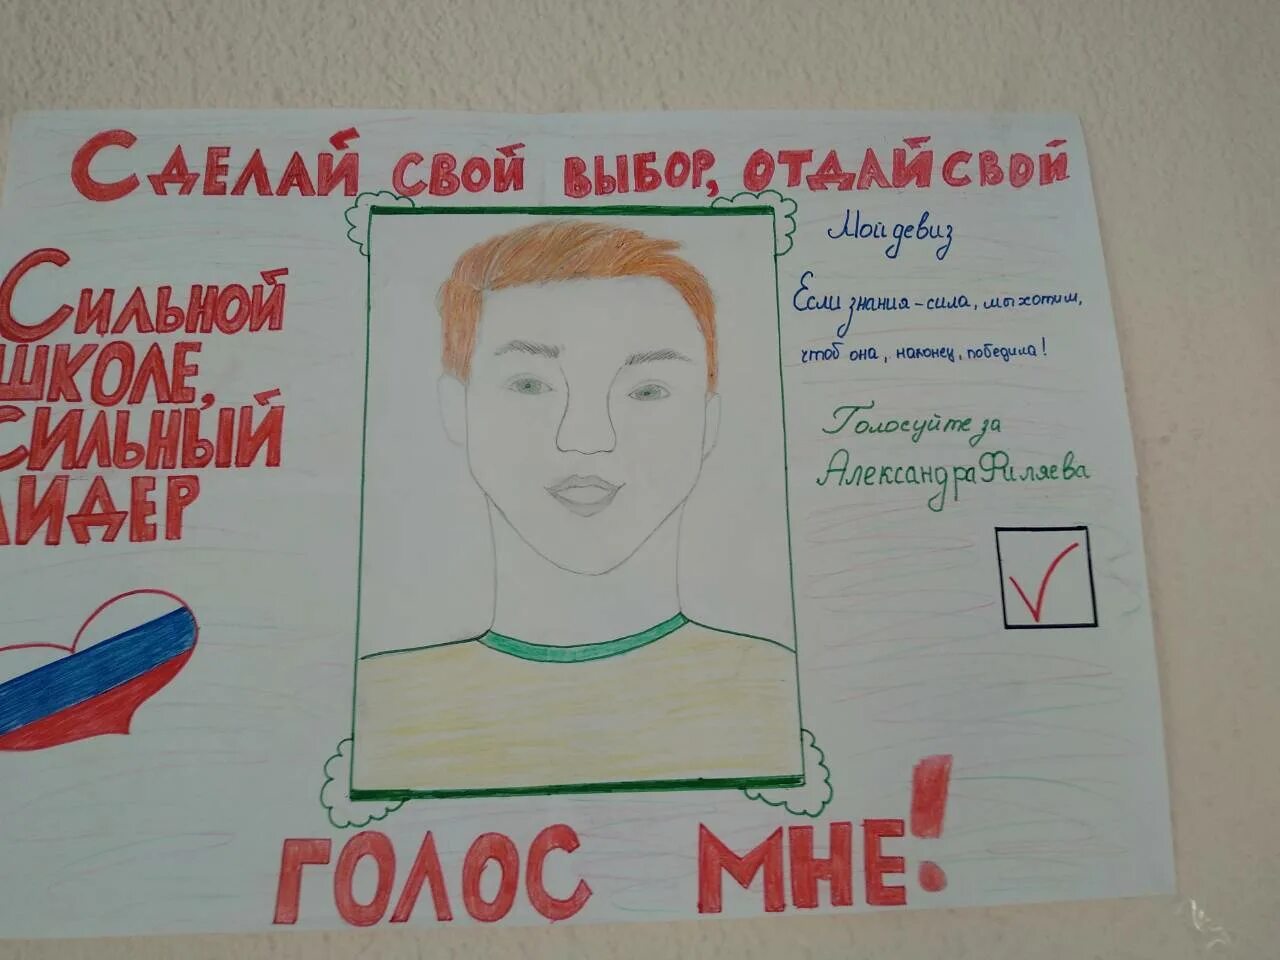 Сделай свой выбор, отдай свой
Сильной
школе,
сильный
лидер
Мой девиз
Если знания - сила, мы хотим,
чтоб она, наконец, победила!
Голосуйте за
Александра Филяева
голос мне!